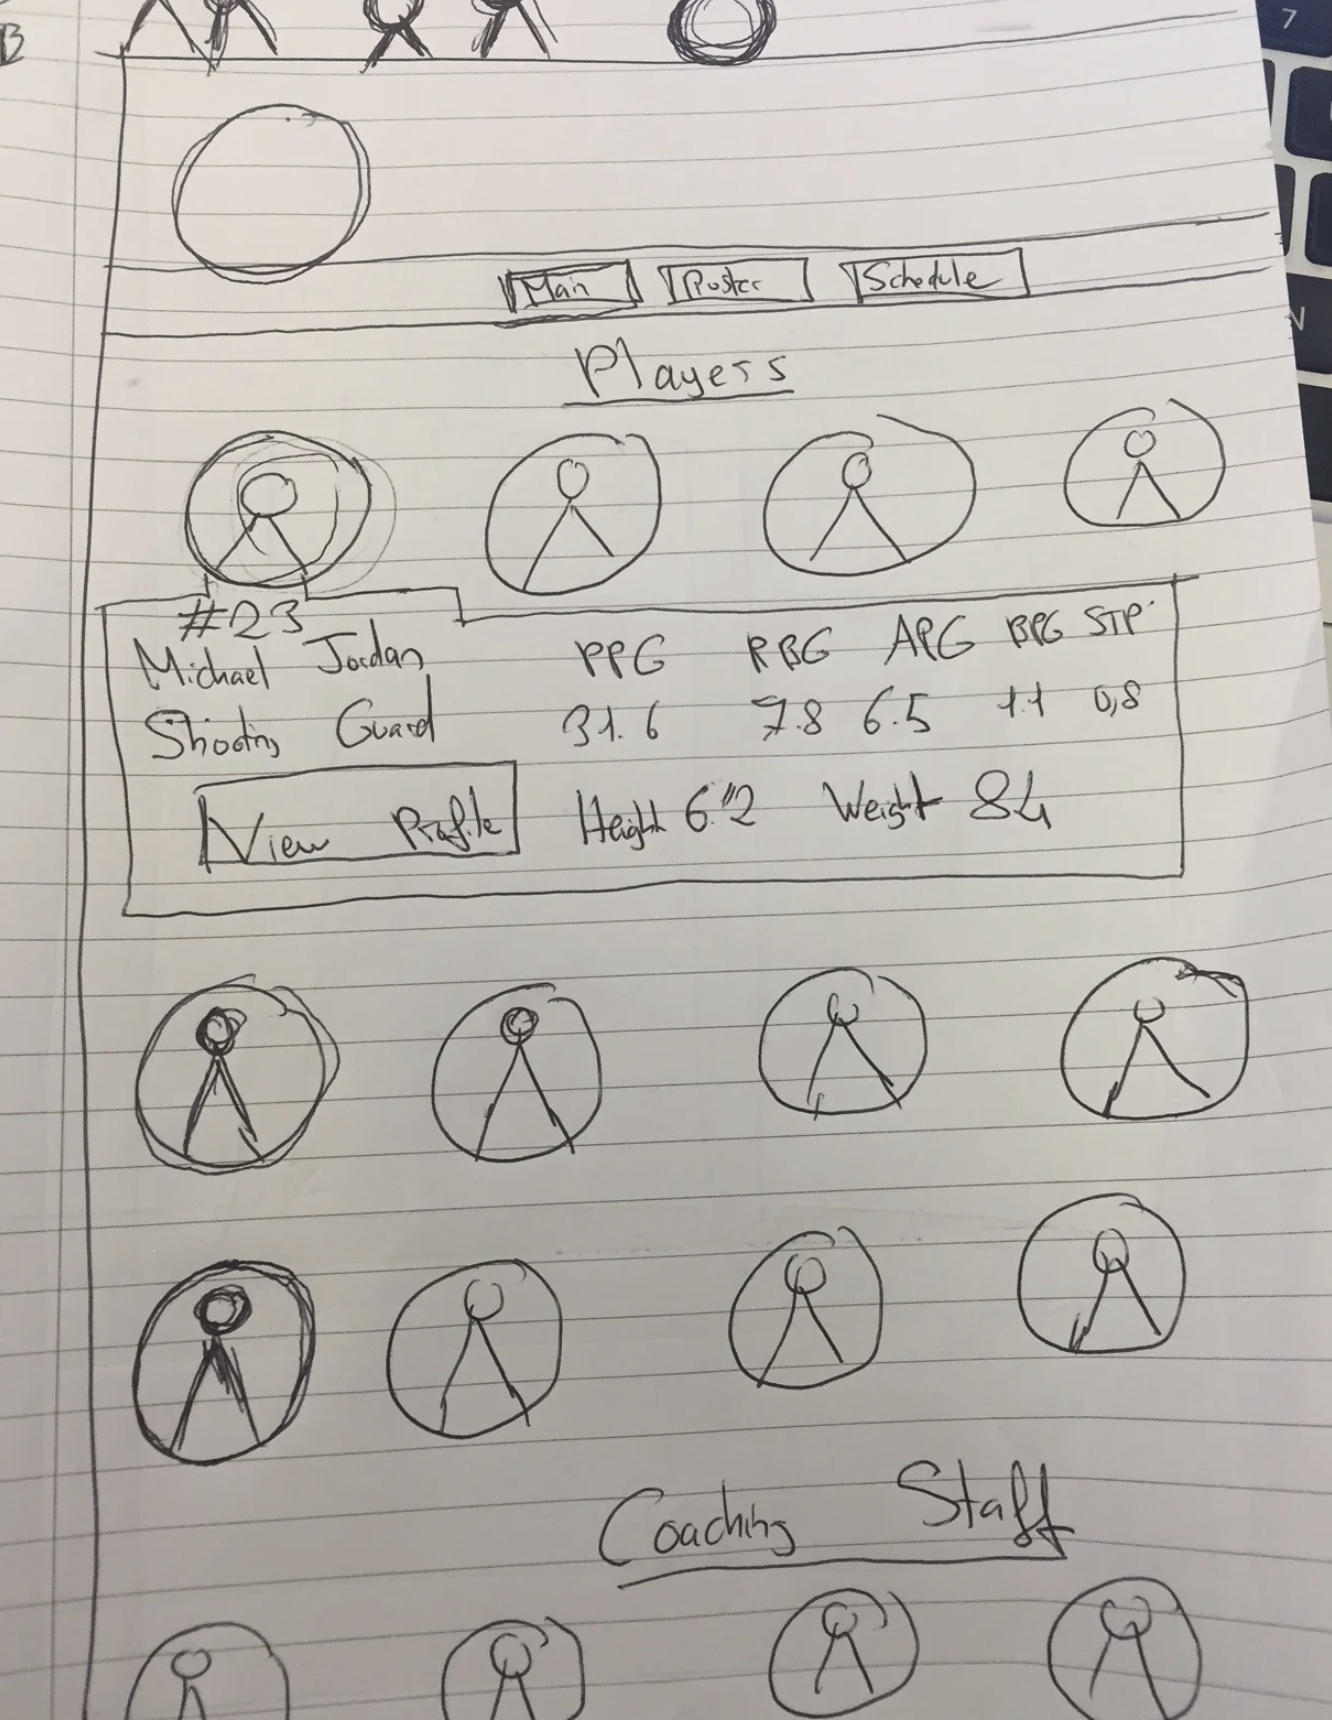 B
7
Main Roster Schedule
N
Players
#23
Michael Jordan PPG RBG APG BPG STP
Shooting Guard 31.6 7.8 6.5 1.1 0,8
View Profile Height 6"2 Weight 84
Coaching Staff